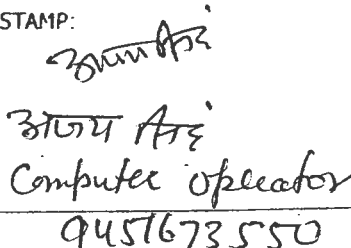 STAMP:
अजय सिंह
अजय सिंह
Computer Opreator
9451673550